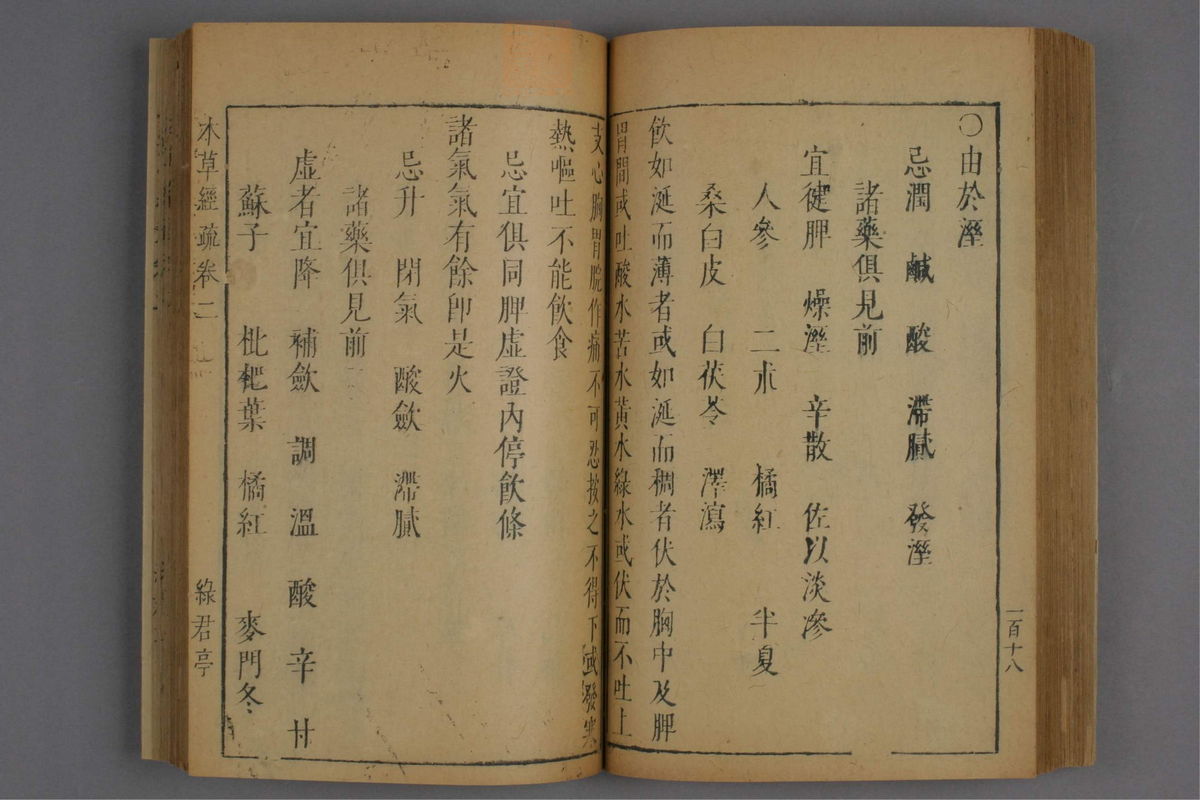 一百十八
○由於溼
忌潤　鹹　酸　滯膩　發溼
諸藥俱見前
宜健脾　燥溼　辛散　佐以淡滲
人參　二朮　橘紅　半夏
桑白皮　白茯苓　澤瀉
飲如涎而薄者或如涎而稠者伏於胸中及脾
胃間或吐酸水苦水黃水綠水或伏而不吐上
支心胸胃脘作痛不可忍按之不得下或發寒
熱嘔吐不能飲食
忌宜俱同脾虛證內停飲條
諸氣氣有餘卽是火
忌升　閉氣　酸斂　滯膩
諸藥俱見前
虛者宜降　補斂　調　溫　酸　辛　甘
蘇子　枇杷葉　橘紅　麥門冬
本草經疏卷二　綠君亭